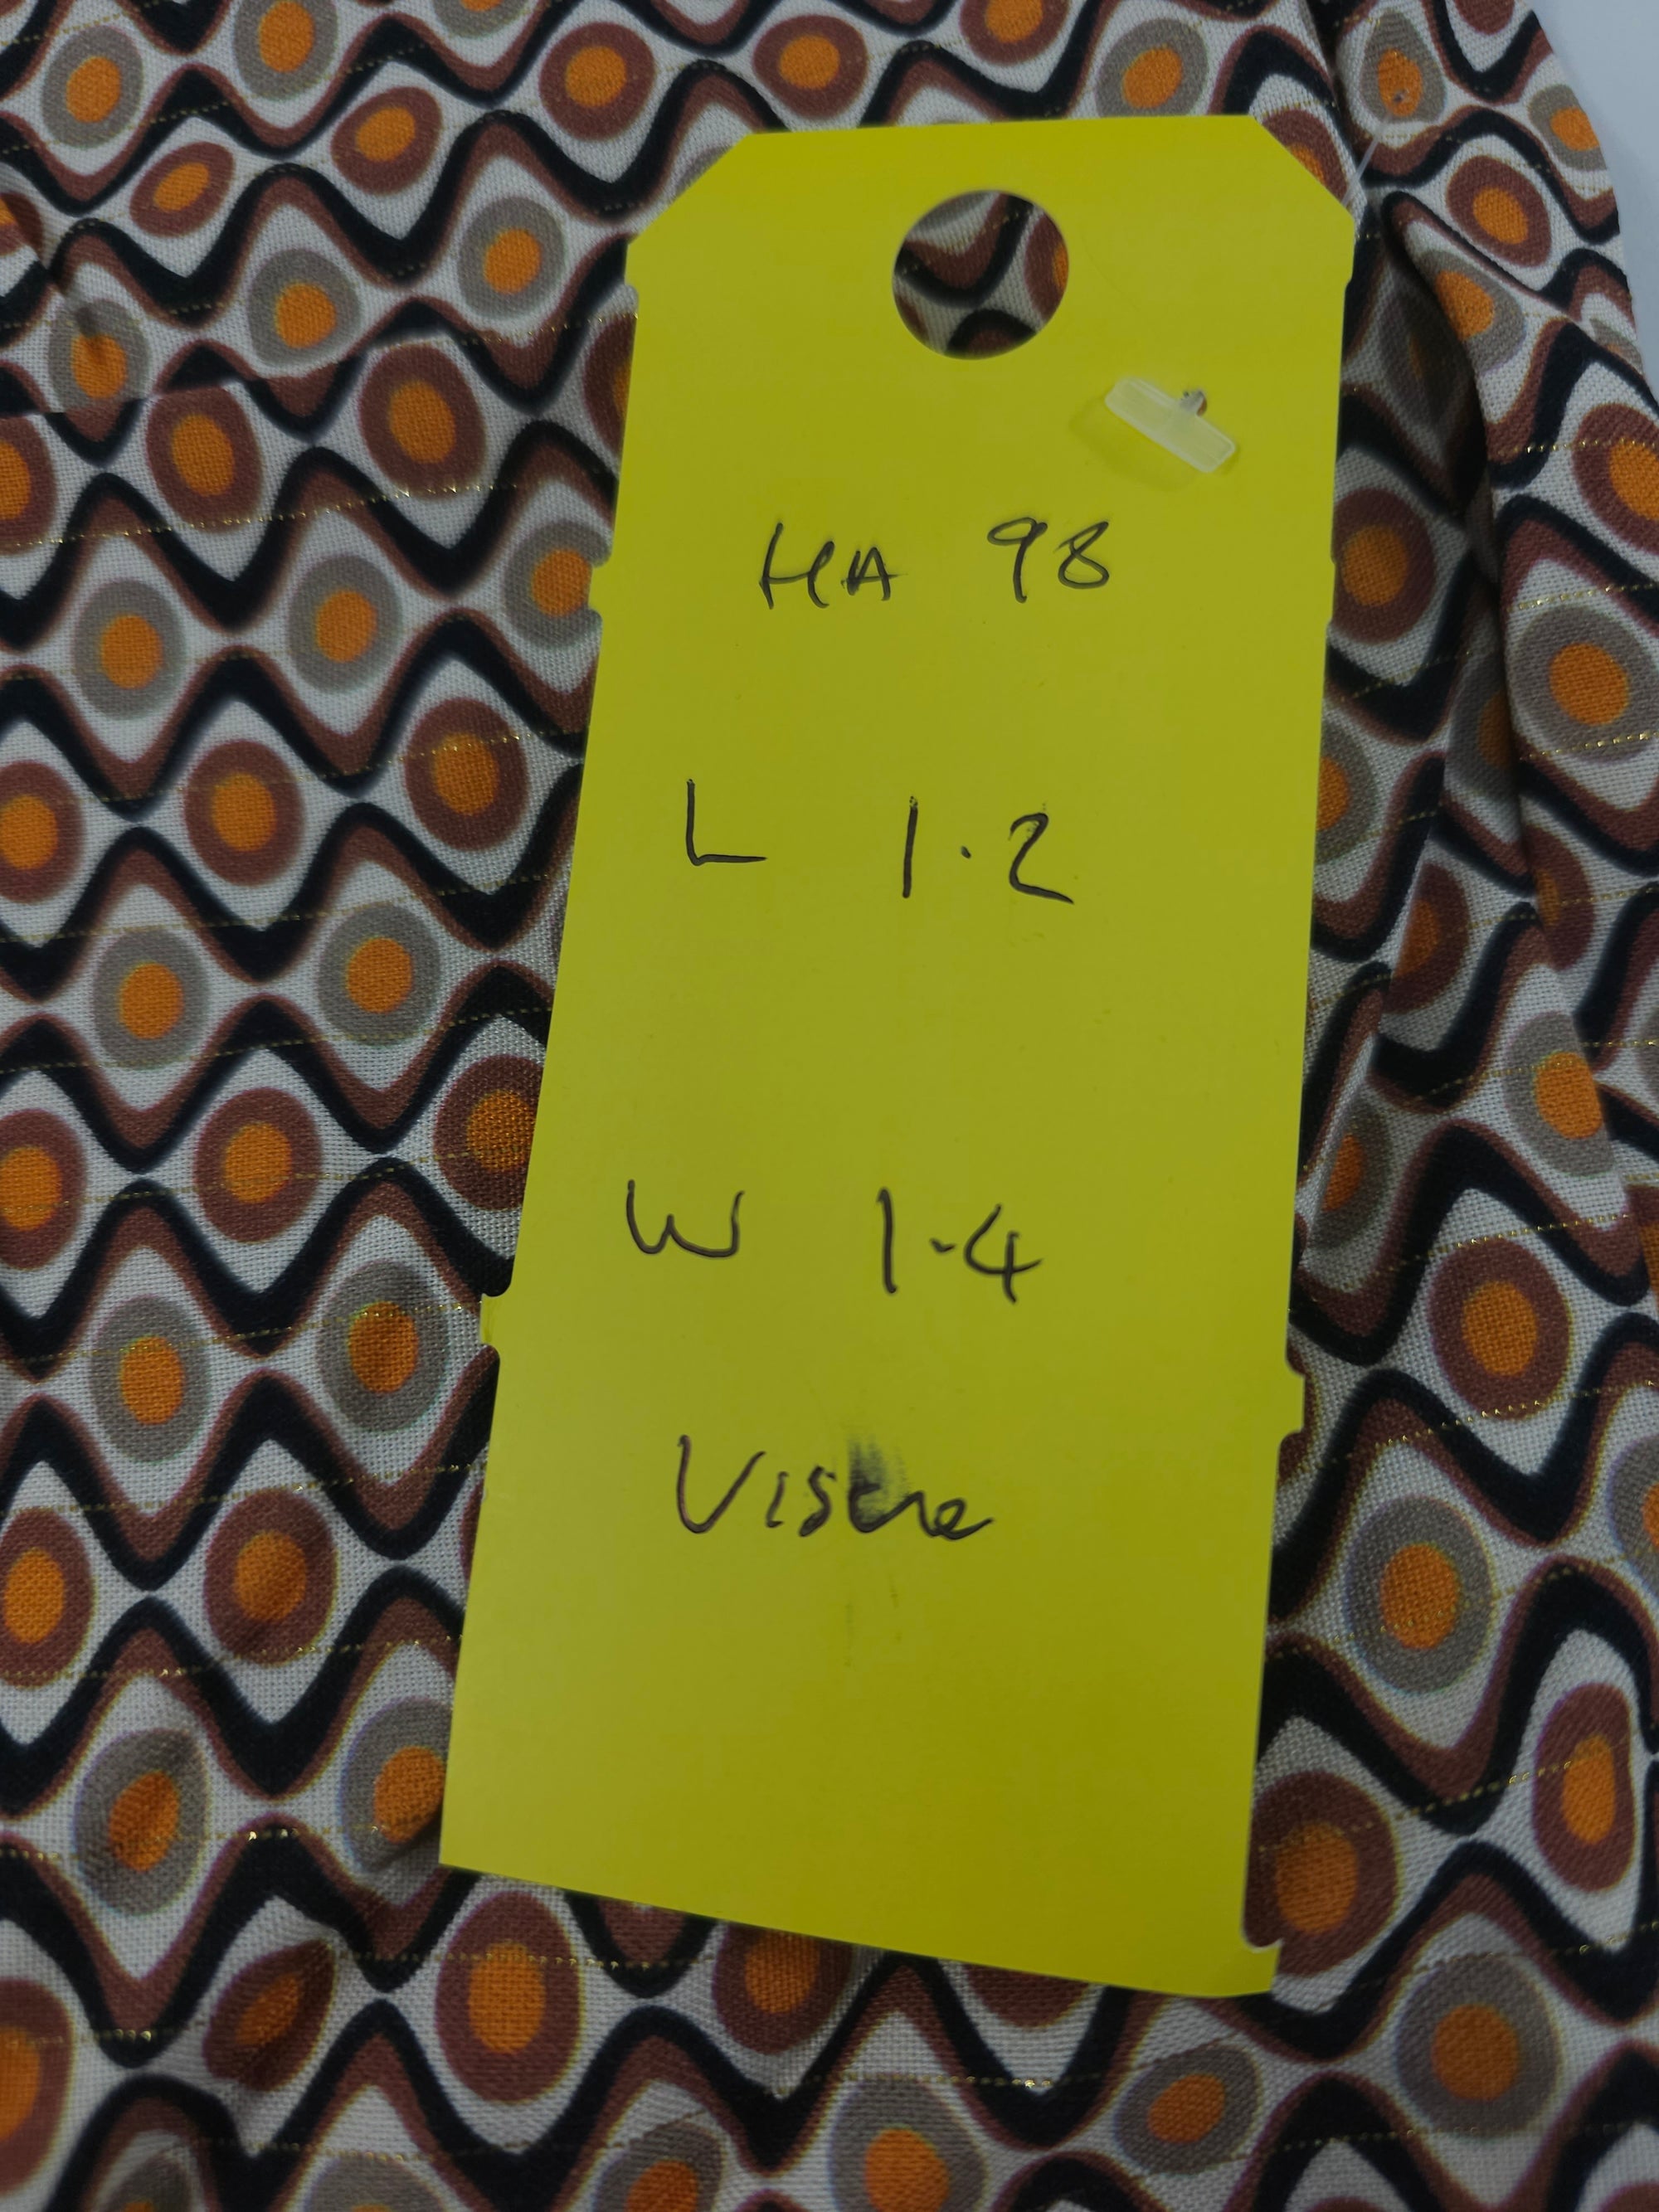 HA 98
L 1.2
W 1.4